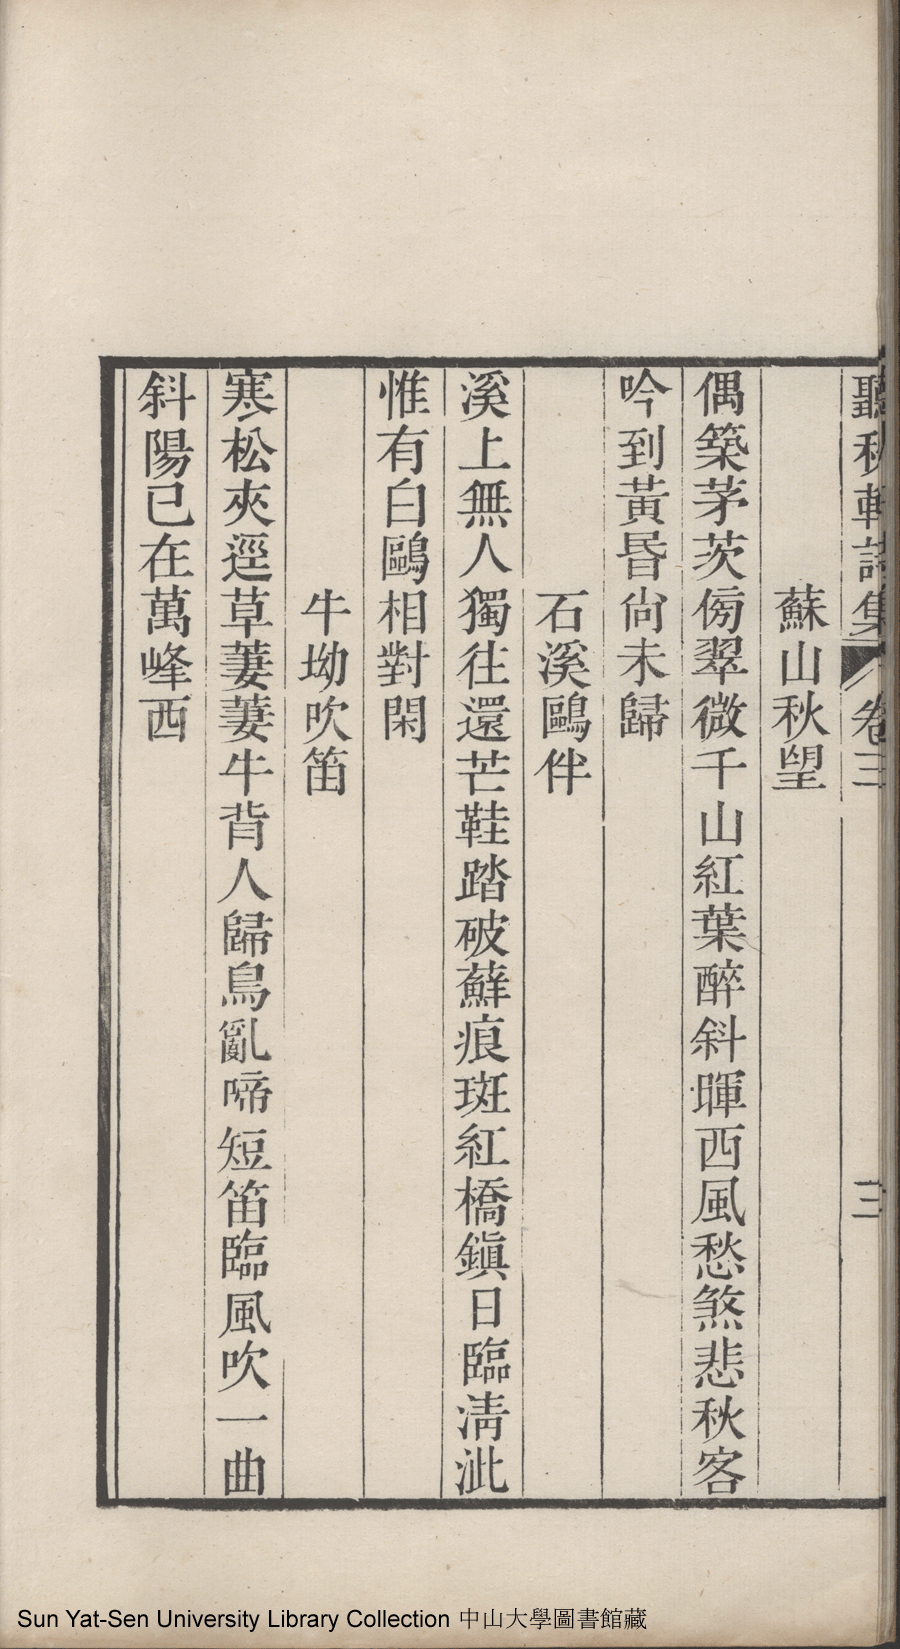 聽秋軒詩集 卷三 三
蘇山秋望
偶築茅茨傍翠微千山紅葉醉斜暉西風愁煞悲秋客
吟到黃昏尙未歸
石溪鷗伴
溪上無人獨往還芒鞋踏破蘚痕斑紅橋鎭日臨淸泚
惟有白鷗相對閑
牛坳吹笛
寒松夾逕草萋萋牛背人歸鳥亂啼短笛臨風吹一曲
斜陽已在萬峰西
Sun Yat-Sen University Library Collection 中山大學圖書館藏